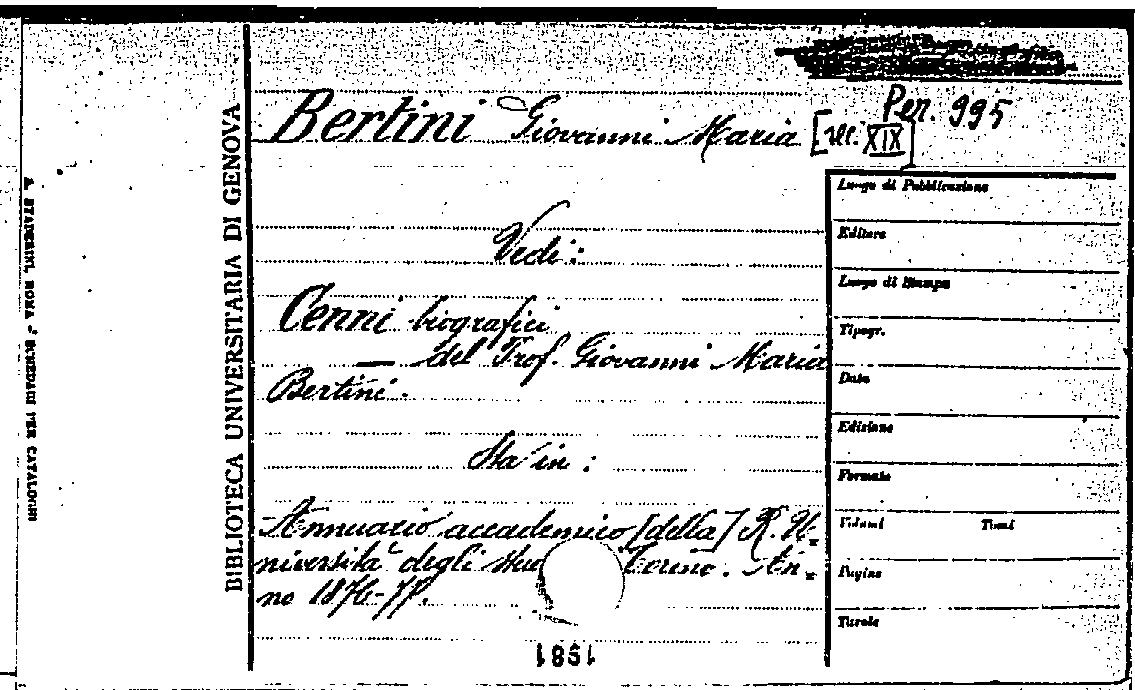 Per. 995
Bertini Giovanni Maria [sec. XIX]
Vedi:
Cenni biografici
— del Prof. Giovanni Maria
Bertini.
Sta in:
Annuario accademico [della] R. U-
niversità degli Torino. An-
no 1876-77.
1981
BIBLIOTECA UNIVERSITARIA DI GENOVA
A. STADERINI, ROMA - SCHEDARI PER CATALOGHI
Luogo di Pubblicazione
Editore
Luogo di Stampa
Tipogr.
Data
Edizione
Formato
Volumi Tomi
Pagine
Tavole